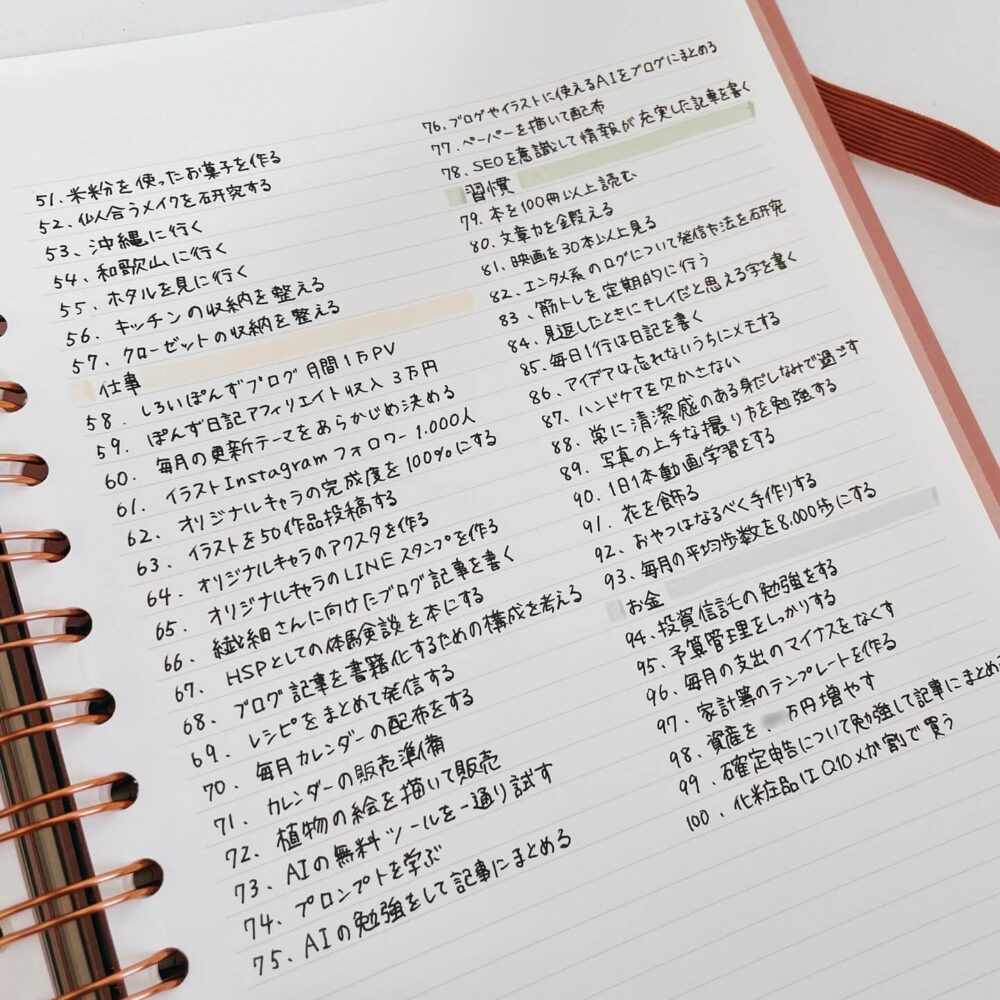 51. 米粉を使ったお菓子を作る
52. 似合うメイクを研究する
53. 沖縄に行く
54. 和歌山に行く
55. ホタルを見に行く
56. キッチンの収納を整える
57. クローゼットの収納を整える
仕事
58. しろいぽんずブログ 月間1万PV
59. ぽんず日記アフィリエイト収入 3万円
60. 毎月の更新テーマをあらかじめ決める
61. イラストInstagramフォロワー 1.000人
62. オリジナルキャラの完成度を100%にする
63. イラストを50作品投稿する
64. オリジナルキャラのアクスタを作る
65. オリジナルキャラのLINEスタンプを作る
66. 繊細さんに向けたブログ記事を書く
67. HSPとしての体験談を本にする
68. ブログ記事を書籍化するための構成を考える
69. レシピをまとめて発信する
70. 毎月カレンダーの配布をする
71. カレンダーの販売準備
72. 植物の絵を描いて販売
73. AIの無料ツールを一通り試す
74. プロンプトを学ぶ
75. AIの勉強をして記事にまとめる
76. ブログやイラストに使えるAIをブログにまとめる
77. ペーパーを描いて配布
78. SEOを意識して情報が充実した記事を書く
習慣
79. 本を100冊以上読む
80. 文章力を鍛える
81. 映画を30本以上見る
82. エンタメ系のログについて発信方法を研究
83. 筋トレを定期的に行う
84. 見返したときにキレイだと思える字を書く
85. 毎日1行は日記を書く
86. アイデアは忘れないうちにメモする
87. ハンドケアを欠かさない
88. 常に清潔感のある身だしなみで過ごす
89. 写真の上手な撮り方を勉強する
90. 1日1本動画学習をする
91. 花を飾る
92. おやつはなるべく手作りする
93. 毎月の平均歩数を8.000歩にする
お金
94. 投資信託の勉強をする
95. 予算管理をしっかりする
96. 毎月の支出のマイナスをなくす
97. 家計簿のテンプレートを作る
98. 資産を 万円増やす
99. 確定申告について勉強して記事にまとめ
100. 化粧品はQ10メガ割で買う